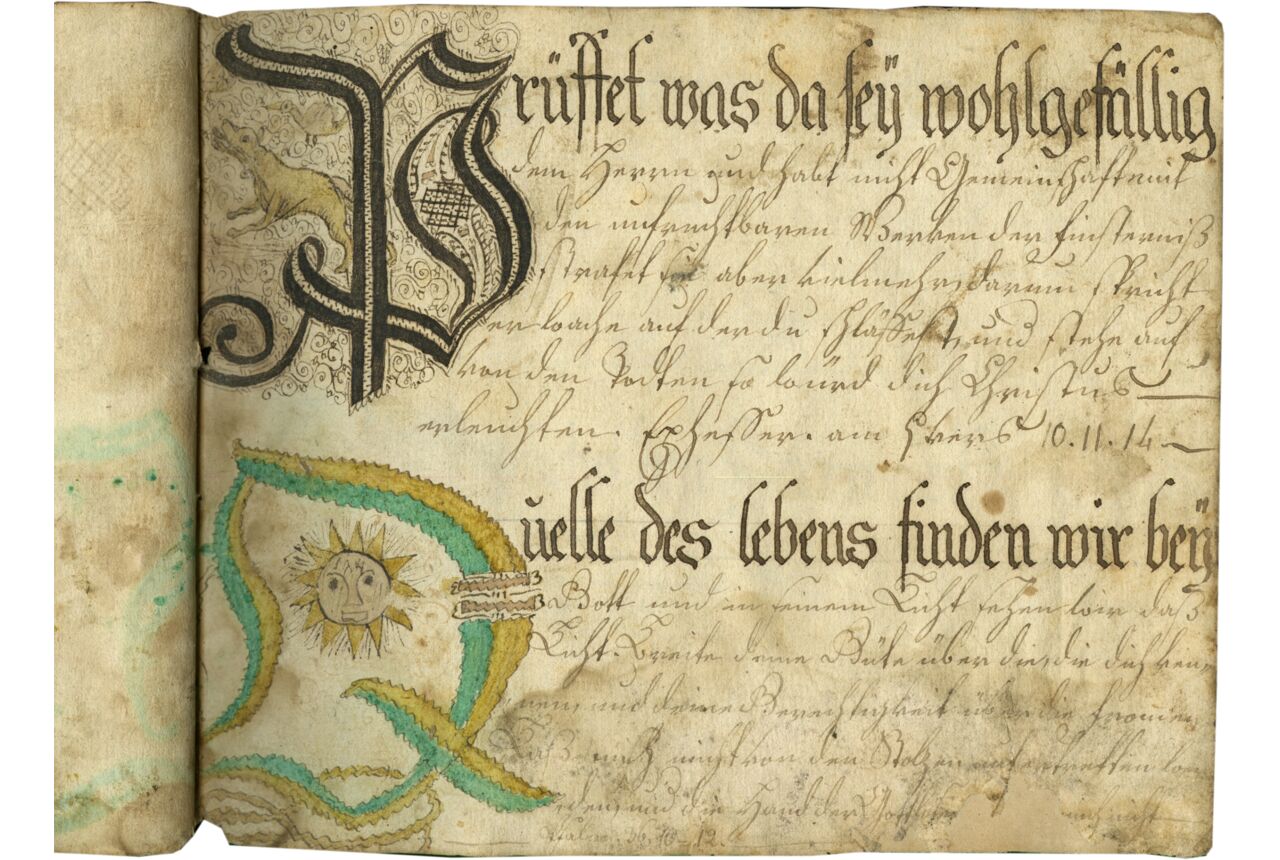 Prüffet was da seÿ wohlgefällig
dem Herrn und habt nicht Gemeinschaft mit
den unfruchtbaren Wercken der Finsterniß
strafet sie aber vielmehr, darum spricht
er wache auf der du schläffest, und stehe auf
von den Todten so würd dich Christus
erleuchten. Ephesser. am 5 vers 10. 11. 14
Quelle des lebens finden wir beÿ
Gott und in seinem Licht sehen wir daß
Licht. Breite deine Güte über die, die dich ken-
nen, und deine Gerechtigkeit über die Fromen,
Laß mich nicht von den Stolzen untertretten wer
den, und die Hand der Gottlosen nicht
Psalm. 36. 10 - 12.